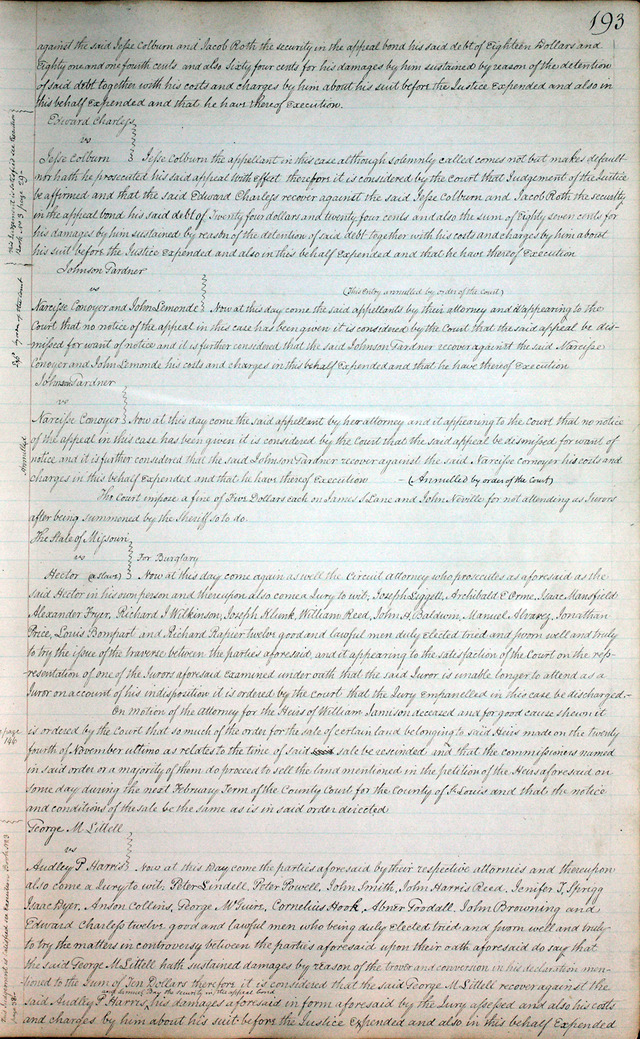 193
against the said Jesse Colburn and Jacob Roth the security in the appeal bond his said debt of Eighteen Dollars and
Eighty one and one fourth cents and also Sixty four cents for his damages by him sustained by reason of the detention
of said debt together with his costs and charges by him about his suit before the Justice Expended and also in
this behalf Expended and that he have thereof Execution.
Edward Charless
vs
Jesse Colburn Jesse Colburn the appellant in this case although solemnly called comes not but makes default
nor hath he prosecuted his said appeal with effect therefore it is considered by the Court that Judgement of the Justice
be affirmed and that the said Edward Charless recover against the said Jesse Colburn and Jacob Roth the security
in the appeal bond his said debt of Twenty four dollars and twenty four cents and also the sum of Eighty seven cents for
his damages by him sustained by reason of the detention of said debt together with his costs and charges by him about
his suit before the Justice Expended and also in this behalf Expended and that he have thereof Execution
Johnson Pardner
vs (This entry annulled by order of the Court)
Narcisse Conoyer and John Lemonde Now at this day come the said appellants by their attorney and it appearing to the
Court that no notice of the appeal in this case has been given it is considered by the Court that the said appeal be dis-
missed for want of notice and it is further considered that the said Johnson Pardner recover against the said Narcisse
Conoyer and John Lemonde his costs and charges in this behalf Expended and that he have thereof Execution
Johnson Pardner
vs
Narcisse Conoyer Now at this day come the said appellant by her attorney and it appearing to the Court that no notice
of the appeal in this case has been given it is considered by the Court that the said appeal be dismissed for want of
notice and it is further considered that the said Johnson Pardner recover against the said Narcisse Conoyer his costs and
charges in this behalf Expended and that he have thereof Execution - (Annulled by order of the Court)
Annulled
The Court impose a fine of Five Dollars each on James S Lane and John Neville for not attending as Jurors
after being summoned by the Sheriff so to do.
The State of Missouri
vs For Burglary
Hector (a slave) Now at this day come again as well the Circuit Attorney who prosecutes as aforesaid as the
said Hector in his own person and thereupon also come a Jury to wit, Joseph Leggett, Archibald E Orme, Isaac Mansfield
Alexander Fryer, Richard I Wilkinson, Joseph Klunk, William Reed, John H Baldwin, Manuel Alvarez, Jonathan
Price, Louis Bompart and Richard Rapier twelve good and lawful men duly elected tried and sworn well and truly
to try the issue of the traverse between the parties aforesaid, and it appearing to the satisfaction of the Court on the rep-
resentation of one of the Jurors aforesaid examined under oath that the said Juror is unable longer to attend as a
Juror on account of his indisposition it is ordered by the Court that the Jury empannelled in this case be discharged.-
On motion of the Attorney for the Heirs of William Jamison deceased and for good cause shewn it
page
146
is ordered by the Court that so much of the order for the sale of certain land belonging to said Heirs made on the twenty
fourth of November ultimo as relates to the time of said sale be rescinded and that the commissioners named
in said order or a majority of them do proceed to sell the land mentioned in the petition of the Heirs aforesaid on
some day during the next February Term of the County Court for the County of St Louis and that the notice
and conditions of the sale be the same as is in said order directed
George M Littell
vs
Audley P Harris Now at this Day come the parties aforesaid by their respective attornies and thereupon
also come a Jury to wit, Peter Lindell, Peter Powell, John Smith, John Harris Reed, Jenifer T, Sprigg
Isaac Dyer, Anson Collins, George McGuire, Cornelius Hook, Abner Goodall, John Browning and
Edward Charless twelve good and lawful men who being duly elected tried and sworn well and truly
to try the matters in controversy between the parties aforesaid upon their oath aforesaid do say that
the said George M Littell hath sustained damages by reason of the trover and conversion in his declaration men-
tioned to the Sum of Ten Dollars therefore it is considered that the said George M Littell recover against the
the security in the appeal bond
said Audley P Harris his damages aforesaid in form aforesaid by the Jury assessed and also his costs
and charges by him about his suit before the Justice Expended and also in this behalf Expended